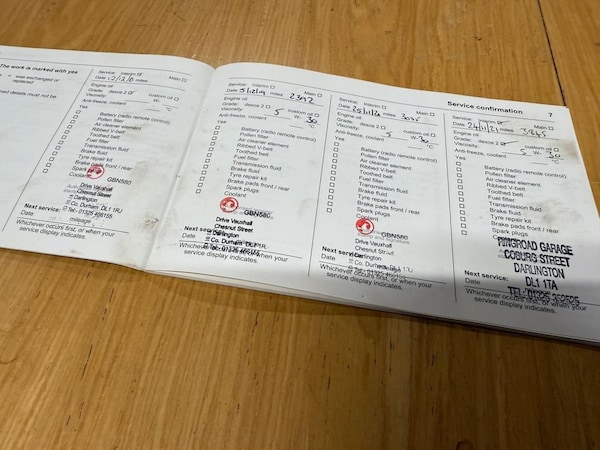 The work is marked with yes
= was exchanged or
replaced
Service: Interim ☑ Main ☐
Date miles
Engine oil
Grade: dexos 2 ☑ custom oil ☐
Viscosity: W-
Anti-freeze, coolant °C
Yes
☐ Battery (radio remote control)
☐ Pollen filter
☐ Air cleaner element
☐ Ribbed V-belt
☐ Toothed belt
☐ Fuel filter
☐ Transmission fluid
☐ Brake fluid
☐ Tyre repair kit
☐ Brake pads front / rear
☐ Spark plugs
☐ Coolant
GBN580
Drive Vauxhall
Chesnut Street
Darlington
Co. Durham DL1 1RJ
Tel- 01325 466155
Next service:
Date mileage
Whichever occurs first, or when your
service display indicates.
Service: Interim ☐ Main ☐
Date 5/2/19 miles 2392
Engine oil
Grade: dexos 2 ☐ custom oil ☐
Viscosity: 5 W- 30
Anti-freeze, coolant °C
Yes
☐ Battery (radio remote control)
☐ Pollen filter
☐ Air cleaner element
☐ Ribbed V-belt
☐ Toothed belt
☐ Fuel filter
☐ Transmission fluid
☐ Brake fluid
☐ Tyre repair kit
☐ Brake pads front / rear
☐ Spark plugs
☐ Coolant
GBN580
Drive Vauxhall
Chesnut Street
Darlington
Co. Durham DL1 1RJ
Tel- 01325 466155
Next service:
Date
Whichever occurs first, or when your
service display indicates.
Service: Interim ☐ Main ☐
Date miles
Engine oil
Grade: dexos 2 ☐ custom oil ☐
Viscosity: 5 W- 30
Anti-freeze, coolant °C
Yes
☐ Battery (radio remote control)
☐ Pollen filter
☐ Air cleaner element
☐ Ribbed V-belt
☐ Toothed belt
☐ Fuel filter
☐ Transmission fluid
☐ Brake fluid
☐ Tyre repair kit
☐ Brake pads front / rear
☐ Spark plugs
☐ Coolant
GBN580
Drive Vauxhall
Chesnut Street
Darlington
Co. Durham DL1 1RJ
Next service:
Date
Whichever occurs first, or when your
service display indicates.
Service confirmation 7
Service: Interim Main ☐
Date 24/11/21 miles 3845
Engine oil
Grade: dexos 2 ☑ custom oil ☐
Viscosity: 5 W- 30
Anti-freeze, coolant °C
Yes
☐ Battery (radio remote control)
☐ Pollen filter
☐ Air cleaner element
☐ Ribbed V-belt
☐ Toothed belt
☐ Fuel filter
☐ Transmission fluid
☐ Brake fluid
☐ Tyre repair kit
☐ Brake pads front / rear
☐ Spark plugs
☐ Coolant
RINGROAD GARAGE
COBURG STREET
DARLINGTON
DL1 1TA
Next service:
Date
Whichever occurs first, or when your
service display indicates.